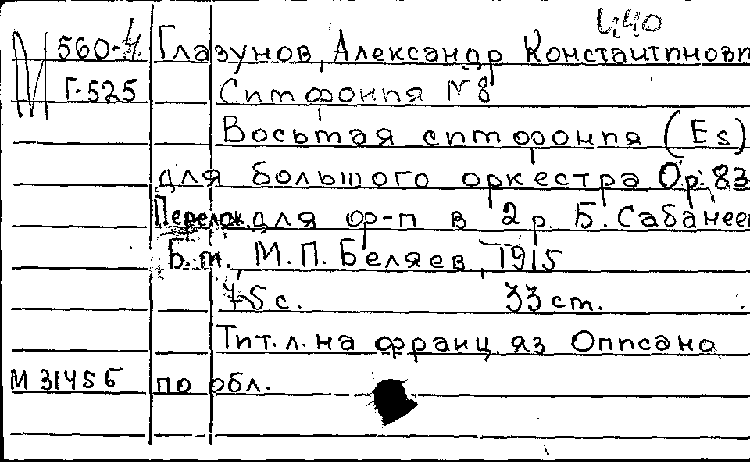 Ц40
М 560-4 Глазунов, Александр Константинович
Г-525 Симфония №8
Восьмая симфония (Es)
для большого оркестра Op. 83
Перелож. для ф-п в 2 р. Б. Сабанеев
Б.м., М.П. Беляев, 1915
75 с. 33 см.
Тит. л. на франц. яз Описана
М 31456 по обл.